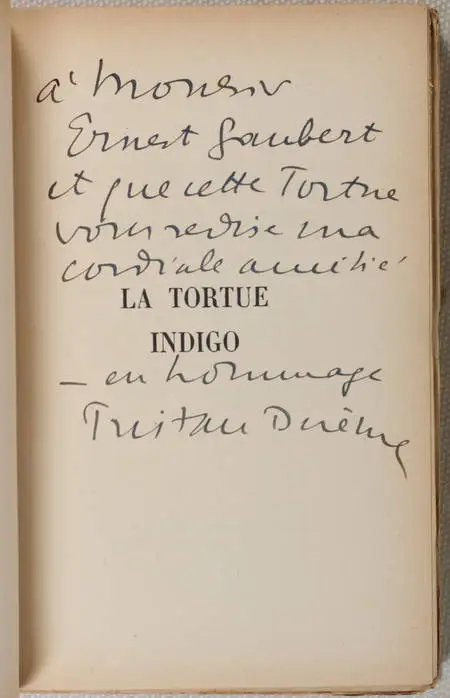 à Monsieur
Ernest Gaubert
et que cette Tortue
vous redise ma
cordiale amitié
LA TORTUE
INDIGO
– en hommage
Tristan Derème